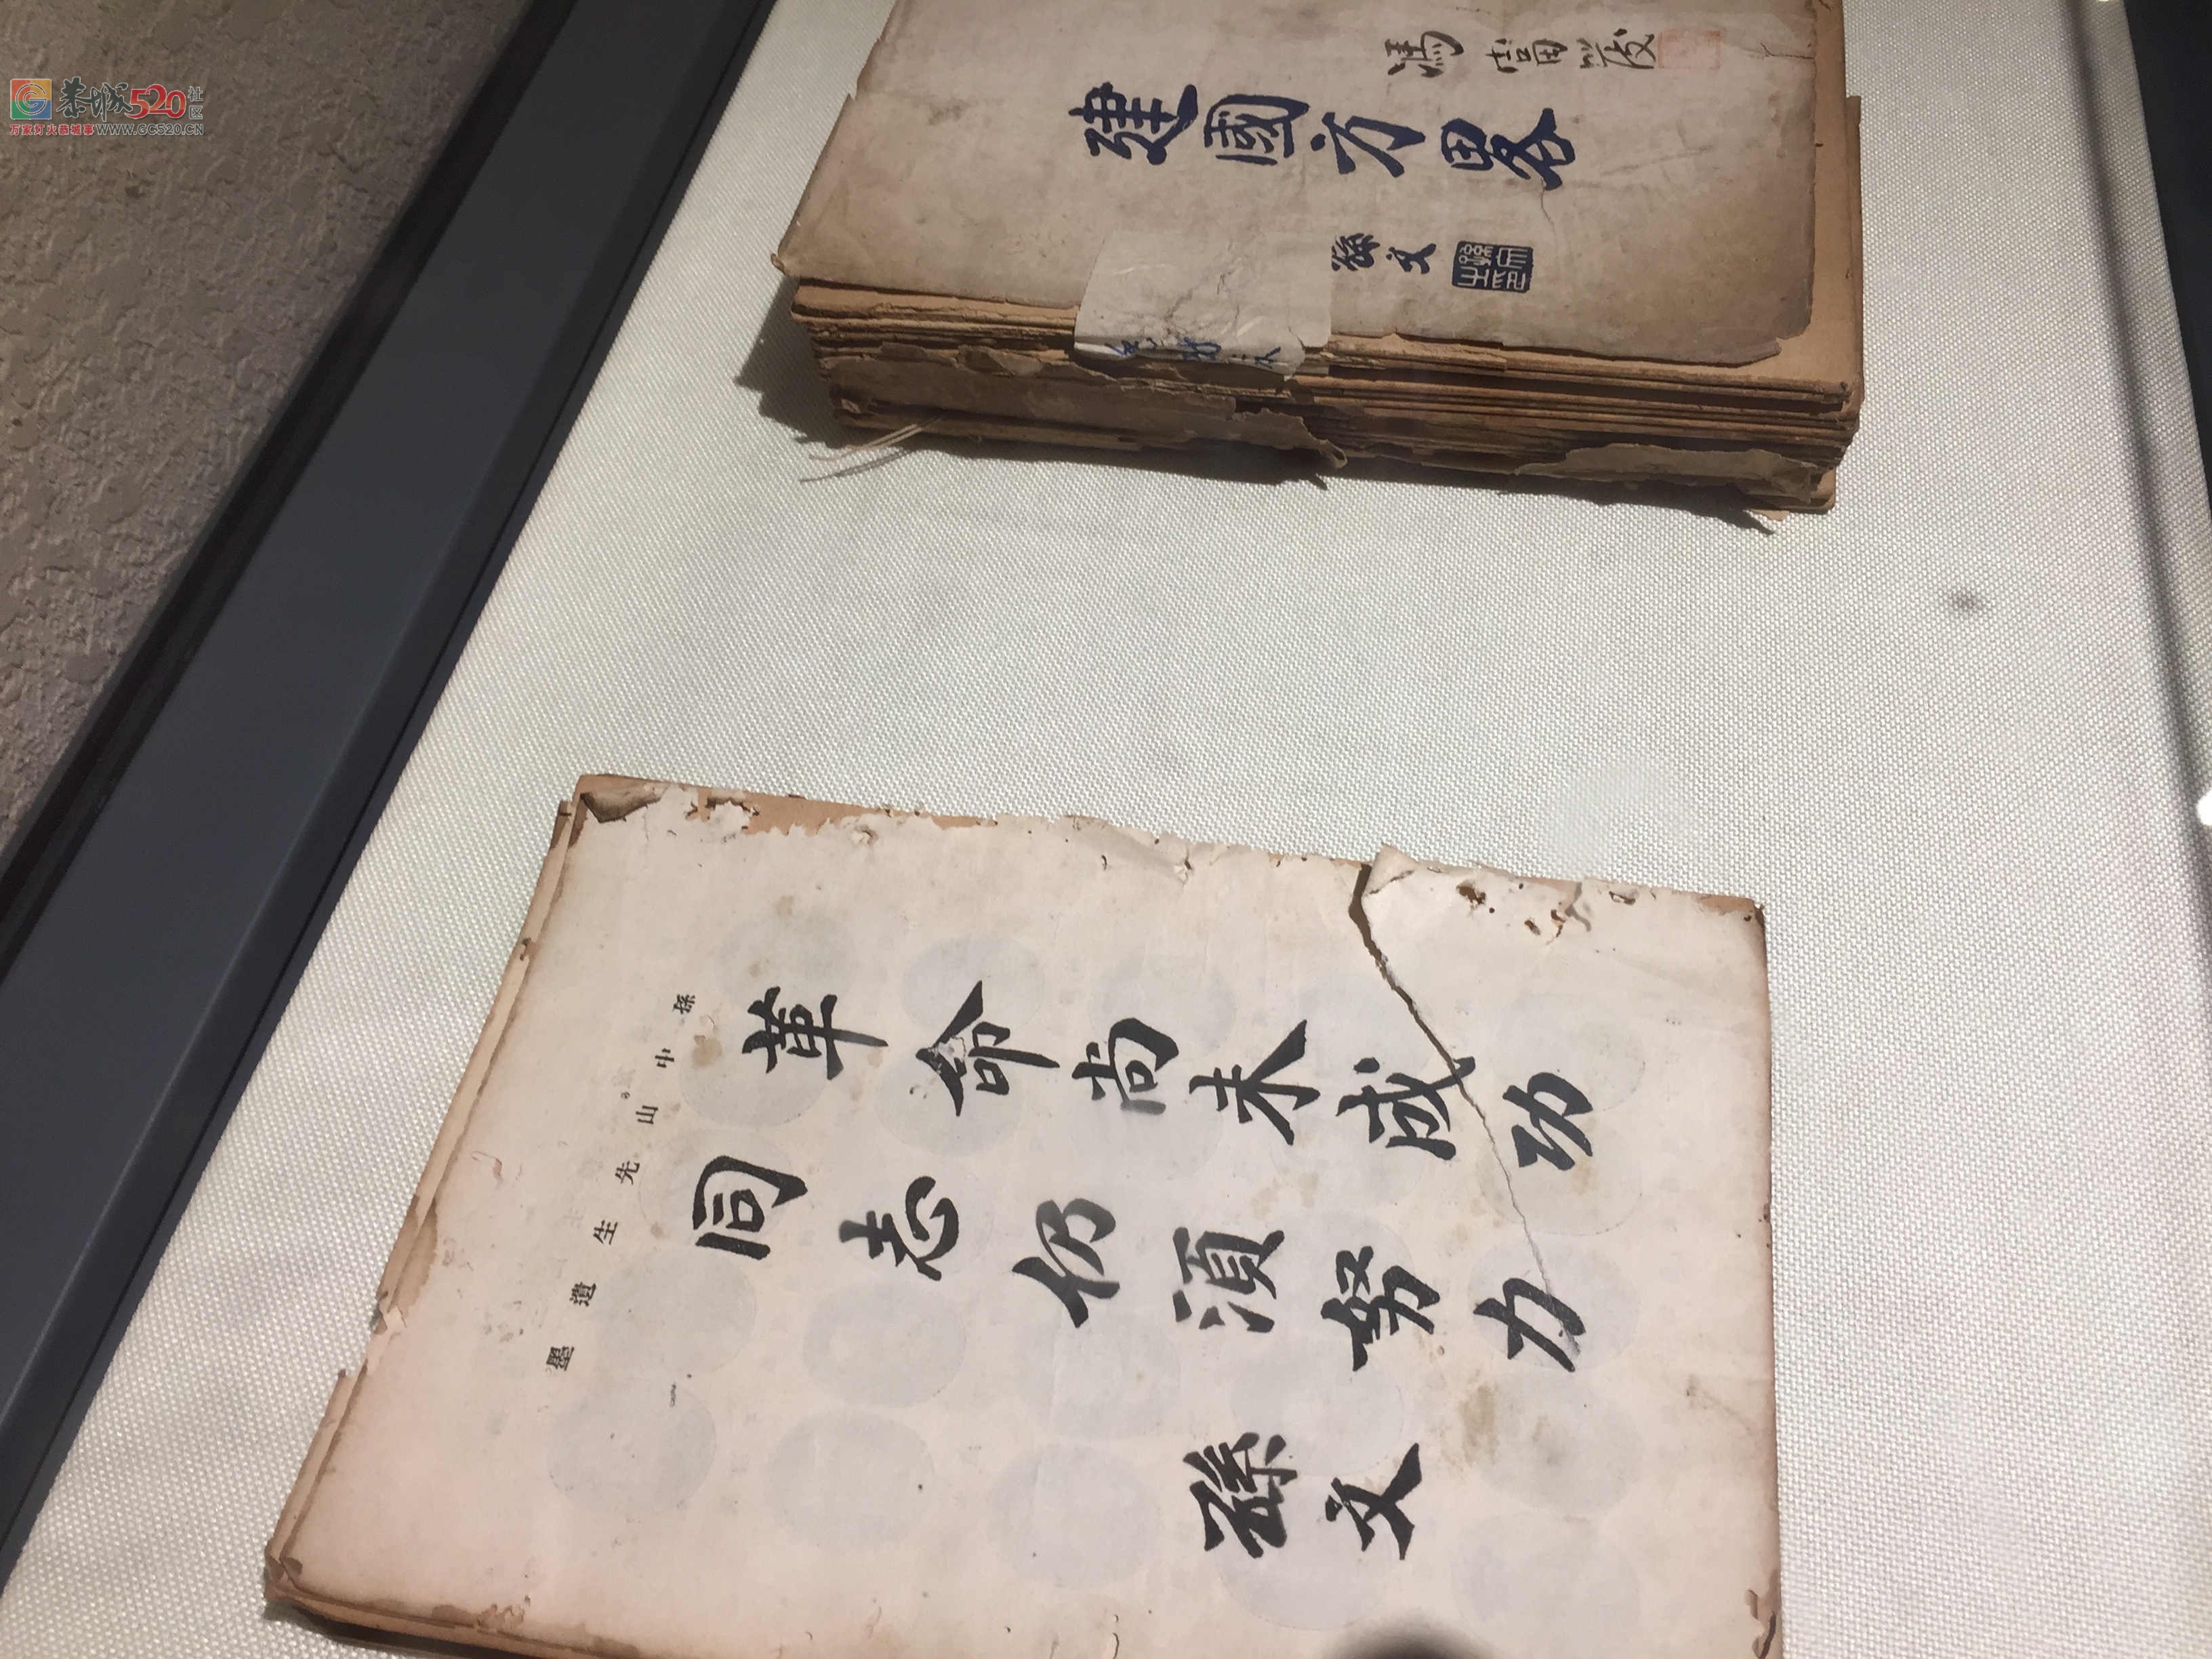 恭城520社区
万家灯火恭城事WWW.GC520.CN
馮富茂
建國方畧
孫文
孫文之印
孫中山先生遺墨
革命尚未成功
同志仍須努力
孫文